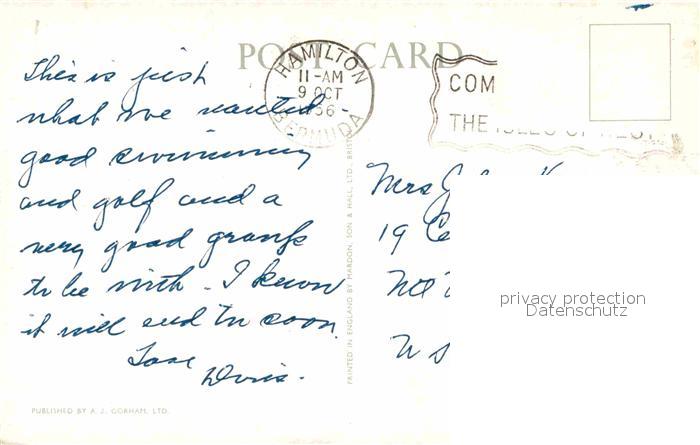 POST CARD
HAMILTON
11-AM
9 OCT
1956
BERMUDA
COM
THE ISLES OF REST
This is just
what we wanted -
good swimming
and golf and a
very good group
to be with - I know
it will end too soon.
Love
Doris.
Mrs
19
U S
PRINTED IN ENGLAND BY MARDON, SON & HALL, LTD., BRISTOL
PUBLISHED BY A. J. GORHAM, LTD.
privacy protection
Datenschutz